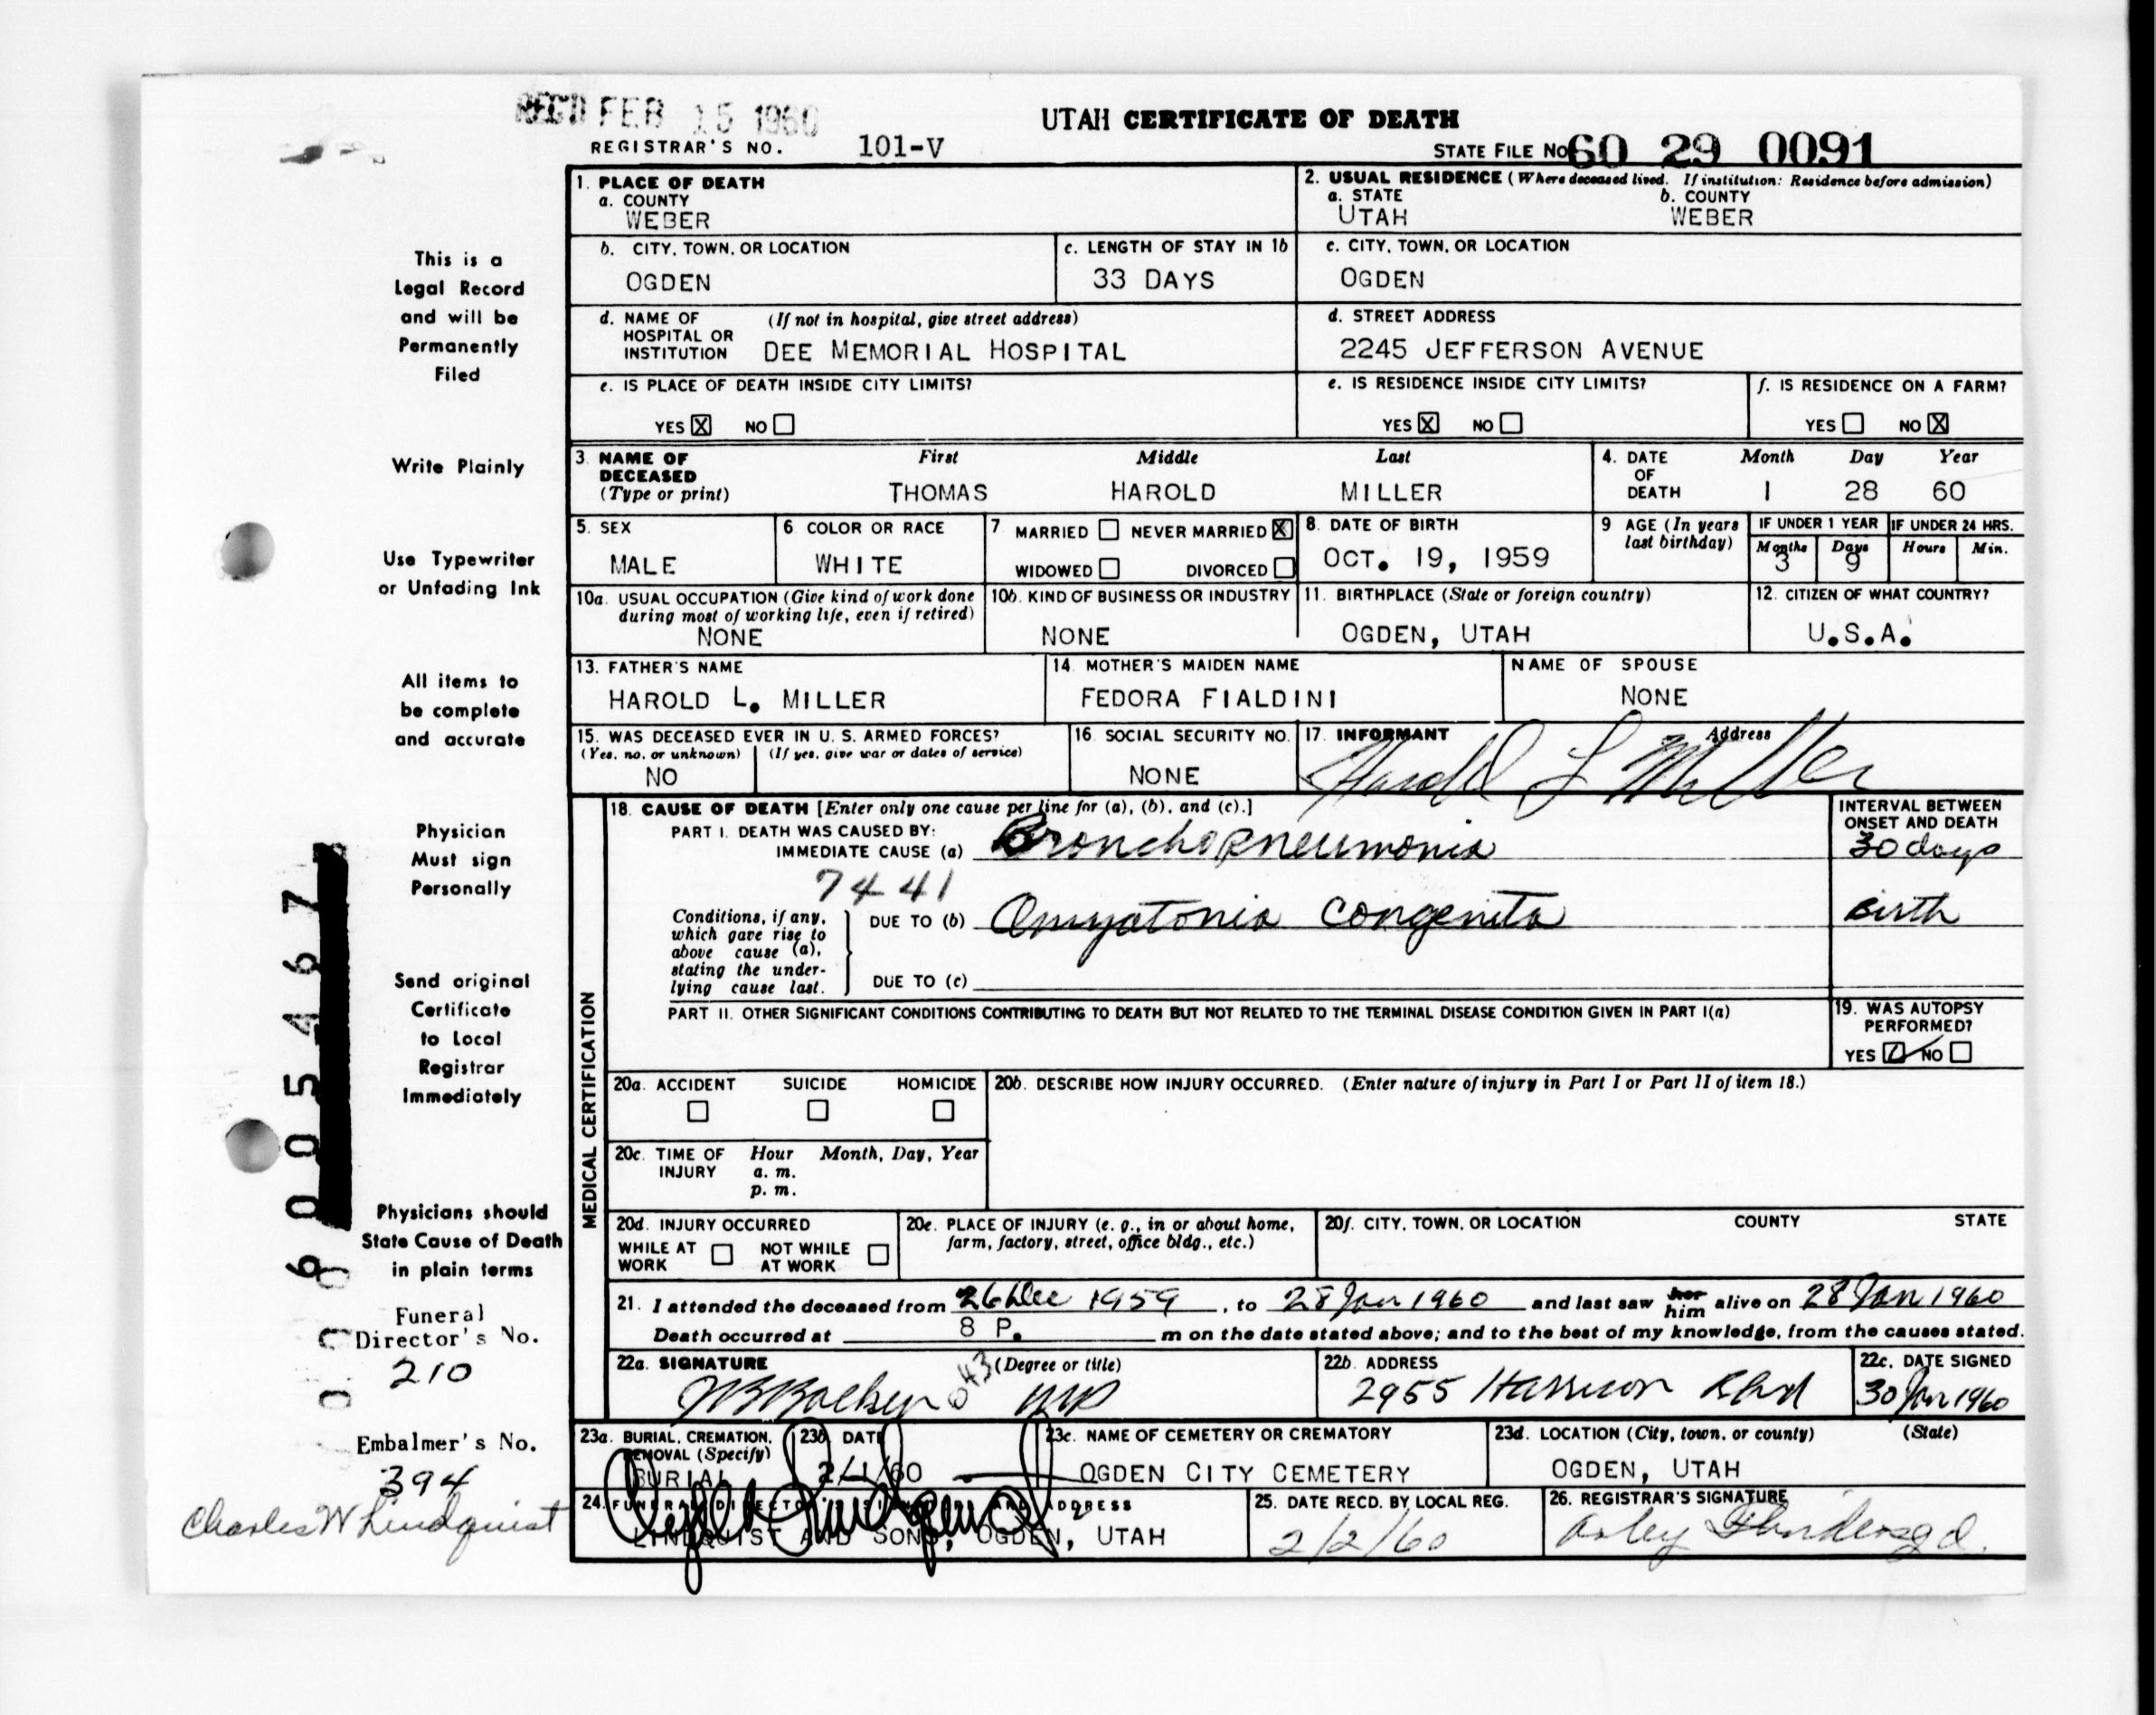 REC'D FEB 15 1960
UTAH CERTIFICATE OF DEATH
REGISTRAR'S NO. 101-V
STATE FILE NO. 60 29 0091
1. PLACE OF DEATH
a. COUNTY
WEBER
2. USUAL RESIDENCE (Where deceased lived. If institution: Residence before admission)
a. STATE b. COUNTY
UTAH WEBER
b. CITY, TOWN, OR LOCATION
OGDEN
c. LENGTH OF STAY IN 1b
33 DAYS
c. CITY, TOWN, OR LOCATION
OGDEN
d. NAME OF (If not in hospital, give street address)
HOSPITAL OR
INSTITUTION DEE MEMORIAL HOSPITAL
d. STREET ADDRESS
2245 JEFFERSON AVENUE
e. IS PLACE OF DEATH INSIDE CITY LIMITS?
YES X NO
e. IS RESIDENCE INSIDE CITY LIMITS?
YES X NO
f. IS RESIDENCE ON A FARM?
YES NO X
3. NAME OF DECEASED (Type or print)
First Middle Last
THOMAS HAROLD MILLER
4. DATE OF DEATH
Month Day Year
1 28 60
5. SEX
MALE
6. COLOR OR RACE
WHITE
7. MARRIED NEVER MARRIED X
WIDOWED DIVORCED
8. DATE OF BIRTH
OCT. 19, 1959
9. AGE (In years last birthday)
IF UNDER 1 YEAR
Months Days
3 9
IF UNDER 24 HRS.
Hours Min.
10a. USUAL OCCUPATION (Give kind of work done
during most of working life, even if retired)
NONE
10b. KIND OF BUSINESS OR INDUSTRY
NONE
11. BIRTHPLACE (State or foreign country)
OGDEN, UTAH
12. CITIZEN OF WHAT COUNTRY?
U.S.A.
13. FATHER'S NAME
HAROLD L. MILLER
14. MOTHER'S MAIDEN NAME
FEDORA FIALDINI
NAME OF SPOUSE
NONE
15. WAS DECEASED EVER IN U. S. ARMED FORCES?
(Yes, no, or unknown) (If yes, give war or dates of service)
NO
16. SOCIAL SECURITY NO.
NONE
17. INFORMANT Address
Harold L Miller
MEDICAL CERTIFICATION
18. CAUSE OF DEATH [Enter only one cause per line for (a), (b), and (c).]
PART I. DEATH WAS CAUSED BY:
IMMEDIATE CAUSE (a) Bronchopneumonia
7441
Conditions, if any,
which gave rise to
above cause (a),
stating the under-
lying cause last.
DUE TO (b) Amyotonia Congenita
DUE TO (c)
INTERVAL BETWEEN
ONSET AND DEATH
30 days
Birth
PART II. OTHER SIGNIFICANT CONDITIONS CONTRIBUTING TO DEATH BUT NOT RELATED TO THE TERMINAL DISEASE CONDITION GIVEN IN PART I(a)
19. WAS AUTOPSY
PERFORMED?
YES NO
20a. ACCIDENT SUICIDE HOMICIDE
20b. DESCRIBE HOW INJURY OCCURRED. (Enter nature of injury in Part I or Part II of item 18.)
20c. TIME OF INJURY
Hour Month, Day, Year
a. m.
p. m.
20d. INJURY OCCURRED
WHILE AT WORK NOT WHILE AT WORK
20e. PLACE OF INJURY (e. g., in or about home,
farm, factory, street, office bldg., etc.)
20f. CITY, TOWN, OR LOCATION COUNTY STATE
21. I attended the deceased from 26 Dec 1959, to 28 Jan 1960 and last saw her him alive on 28 Jan 1960
Death occurred at 8 P. m on the date stated above; and to the best of my knowledge, from the causes stated.
22a. SIGNATURE (Degree or title)
043
MD
22b. ADDRESS
2955 Harrison Blvd
22c. DATE SIGNED
30 Jan 1960
23a. BURIAL, CREMATION,
REMOVAL (Specify)
BURIAL
23b. DATE
2/1/60
23c. NAME OF CEMETERY OR CREMATORY
OGDEN CITY CEMETERY
23d. LOCATION (City, town, or county) (State)
OGDEN, UTAH
24. FUNERAL DIRECTOR'S SIGNATURE AND ADDRESS
LINDQUIST AND SONS, OGDEN, UTAH
25. DATE RECD. BY LOCAL REG.
2/2/60
26. REGISTRAR'S SIGNATURE
This is a
Legal Record
and will be
Permanently
Filed
Write Plainly
Use Typewriter
or Unfading Ink
All items to
be complete
and accurate
Physician
Must sign
Personally
Send original
Certificate
to Local
Registrar
Immediately
Physicians should
State Cause of Death
in plain terms
Funeral
Director's No.
210
Embalmer's No.
394
Charles W Lindquist
6005467